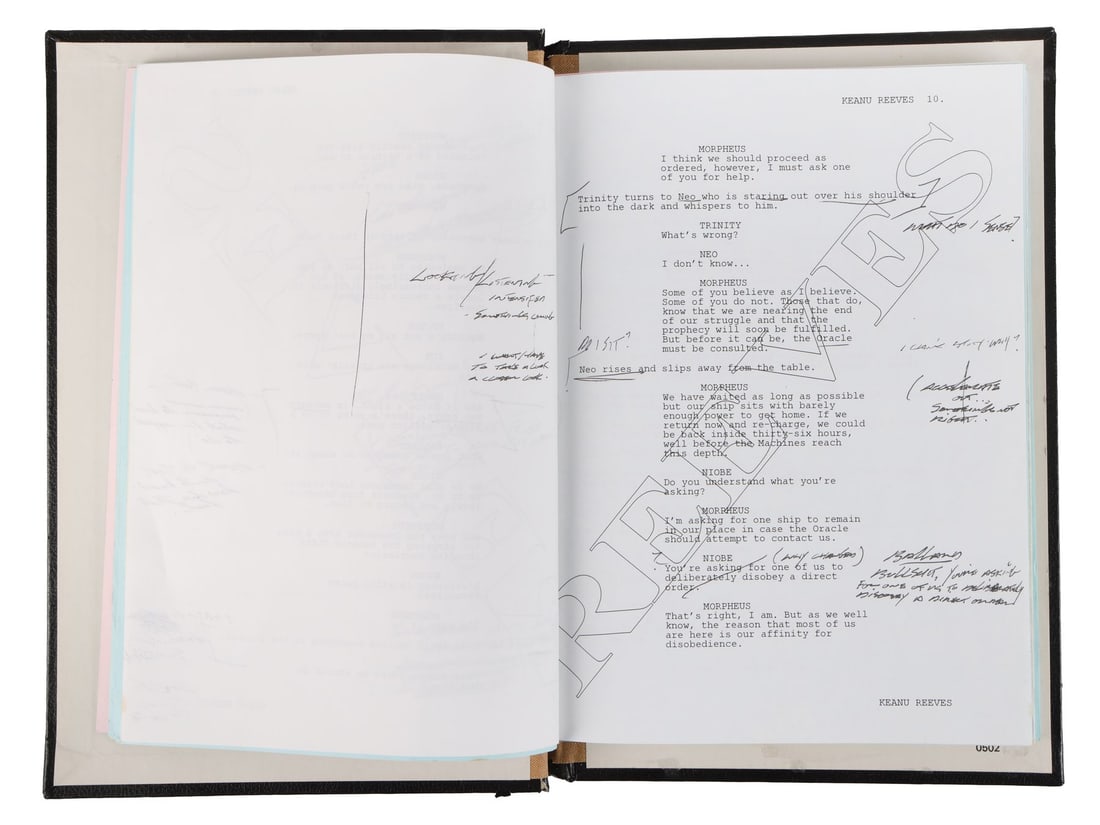 LOOKING/LISTENING
INTENSIFIES
I WANT/HAVE
TO TAKE A LOOK
A CLOSER LOOK.
KEANU REEVES 10.
MORPHEUS
I think we should proceed as
ordered, however, I must ask one
of you for help.
Trinity turns to Neo who is staring out over his shoulder
into the dark and whispers to him.
WHAT DO I SENSE?
TRINITY
What's wrong?
NEO
I don't know...
MORPHEUS
Some of you believe as I believe.
Some of you do not. Those that do,
know that we are nearing the end
of our struggle and that the
prophecy will soon be fulfilled.
But before it can be, the Oracle
must be consulted.
DO I SIT?
WHY?
Neo rises and slips away from the table.
(ACCELERATE
OUT...
SOMETHING NOT
RIGHT..
MORPHEUS
We have waited as long as possible
but our ship sits with barely
enough power to get home. If we
return now and re-charge, we could
be back inside thirty-six hours,
well before the Machines reach
this depth.
NIOBE
Do you understand what you're
asking?
MORPHEUS
I'm asking for one ship to remain
in our place in case the Oracle
should attempt to contact us.
NIOBE
(WHY CHANGED)
You're asking for one of us to
deliberately disobey a direct
order.
BALLARD
BULLSHIT, YOU'RE ASKING
FOR ONE OF US TO DELIBERATELY
DISOBEY A DIRECT ORDER
MORPHEUS
That's right, I am. But as we well
know, the reason that most of us
are here is our affinity for
disobedience.
KEANU REEVES
REEVES
0502